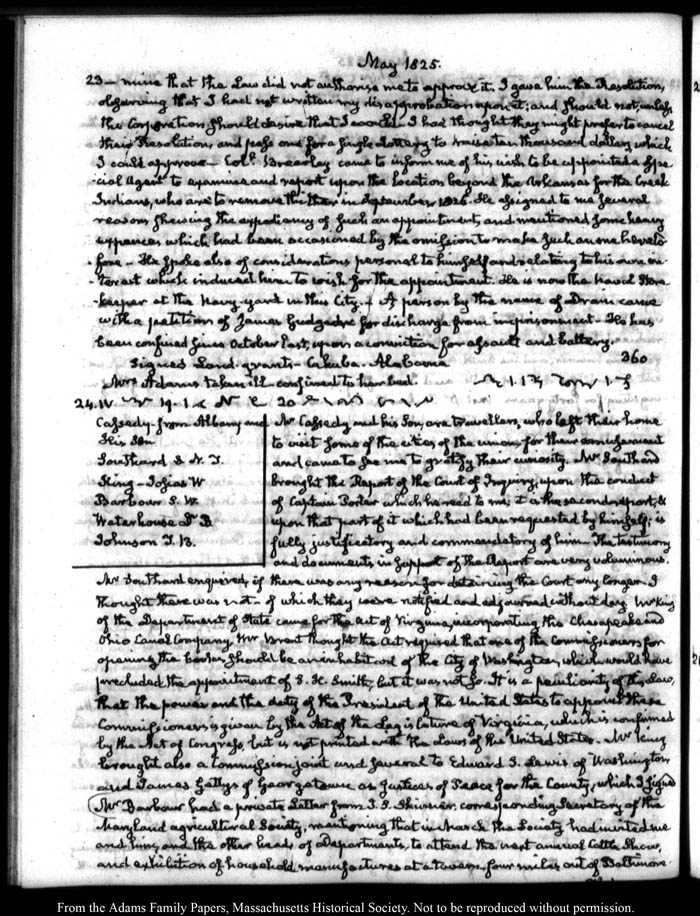 May 1825.
23 — mine that the Law did not authorise me to approve it. I gave him the Resolution,
observing that I had not written my disapprobation upon it; and should not, unless
the Corporation should desire that I would. I had thought they might prefer to cancel
their Resolution and pass one for a single Lottery to raise ten thousand dollars which
I could approve — Coll. Brearley came to inform me of his wish to be appointed a Spe
-cial Agent to examine and report upon the Location beyond the Arkansas for the Creek
Indians, who are to remove thither in September 1826. He assigned to me several
reasons shewing the expediency of such an appointment, and mentioned some heavy
expences which had been occasioned by the omission to make such an one hereto
-fore — He spoke also of considerations personal to himself and relating to his own in
-terest which induced him to wish for the appointment. He is now the Naval Store
-keeper at the Navy-yard in this City. A person by the name of Drane came
with a petition of James for discharge from imprisonment — He has
been confined since October last, upon a conviction for assault and battery.
Signed Land-grants — Cahaba. Alabama 360
Mrs Adams taken ill — confined to her bed.
24. IV
Cassedy — from Albany and
His Son
Southard S. N. J.
King — Josias W
Barbour S. W.
Waterhouse Dr B
Johnson J. B.
Mr Cassedy and his Son, are travellers, who left their home
to visit some of the cities of the union, for their amusement
and came to see me to gratify their curiosity. Mr Southard
brought the Report of the Court of Inquiry, upon the conduct
of Captain Porter which he read to me; it is the second report, &
upon that part of it which had been requested by himself; is
fully justificatory and commendatory of him. The testimony
and documents in support of the Report are very voluminous.
Mr Southard enquired, if there was any reason for detaining the Court any longer. I
thought there was not — of which they were notified and adjourned without day. Mr King
of the Department of State came for the Act of Virginia, incorporating the Chesapeake and
Ohio Canal Company. Mr Brent thought the Act required that one of the Commissioners for
opening the books, should be an inhabitant of the City of Washington, which would have
precluded the appointment of S. H. Smith, but it was not so. It is a peculiarity of this Law,
that the power and the duty of the President of the United States to appoint these
Commissioners is given by the Act of the Legislature of Virginia, which is confirmed
by the Act of Congress, but is not printed with the Laws of the United States. Mr King
brought also a Commission joint and several to Edward S. Lewis of Washington
and James Gettys of Georgetown as Justices of Peace for the County, which I signed
Mr Barbour had a private Letter from J. S. Skinner, corresponding Secretary of the
Maryland agricultural Society, mentioning that in March the Society had invited me
and him, and the other heads of Departments, to attend the next annual Cattle Show,
and exhibition of household manufactures at a tavern, four miles out of Baltimore
From the Adams Family Papers, Massachusetts Historical Society. Not to be reproduced without permission.